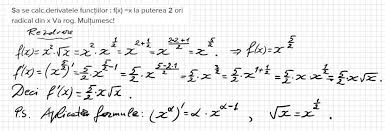 Sa se calc.derivatele funcțiilor : f(x) =x la puterea 2 ori
radical din x Va rog. Mulțumesc!
Rezolvare
f(x)=x²·√x = x²·x^{1/2} = x^{2+1/2} = x^{(2·2+1)/2} = x^{5/2}. ⇒ f(x)=x^{5/2}
f'(x)=(x^{5/2})' = 5/2·x^{5/2-1} = 5/2·x^{(5-2·1)/2} = 5/2·x^{3/2} = 5/2·x^{1+1/2} = 5/2·x·x^{1/2} = 5/2·x√x
Deci f'(x) = 5/2·x√x.
Ps. Aplicăm formule: (x^α)' = α·x^{α-1}, √x = x^{1/2}.